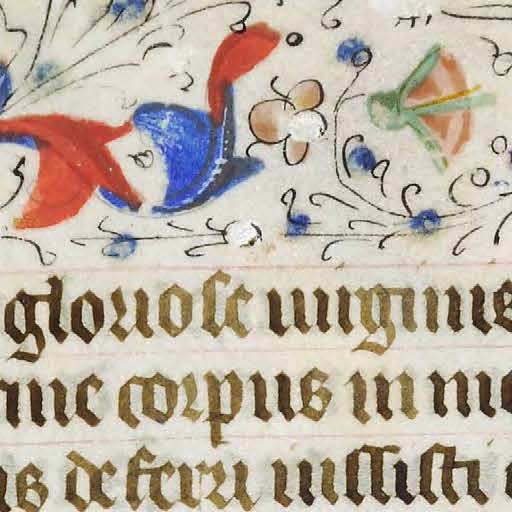 gloriose uirginis
ine corpus in mo
us deferri iussisti